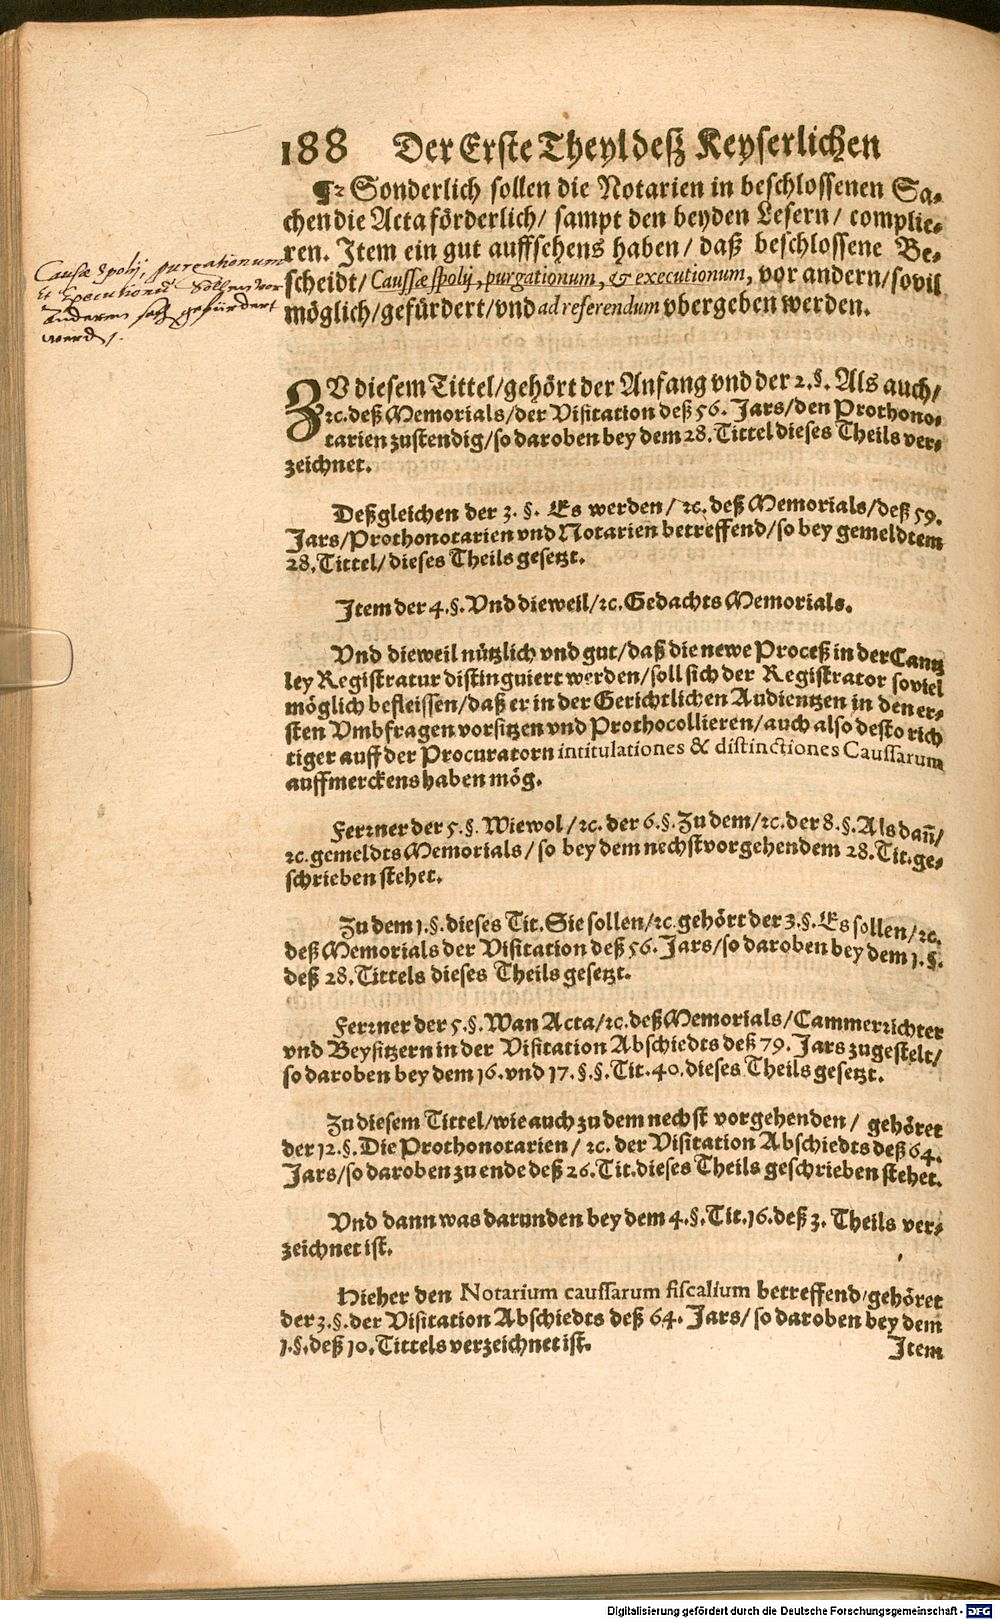 188 Der Erste Theyl deß Keyserlichen
¶2 Sonderlich sollen die Notarien in beschlossenen Sa⸗
chen die Acta förderlich/ sampt den beyden Lesern/ complie⸗
ren. Item ein gut auffsehens haben/ daß beschlossene Be⸗
scheidt/ Caussæ spolij, purgationum, & executionum, vor andern/ sovil
möglich/ gefürdert/ vnd ad referendum vbergeben werden.
Causæ Spolij, purgationum
Et Executionū Sollen vor
Anderen gefürdert
werdē.
ZV diesem Tittel/ gehört der Anfang vnd der 2. §. Als auch/
ꝛc. deß Memorials/ der Visitation deß 56. Jars/ den Prothono⸗
tarien zustendig/ so daroben bey dem 28. Tittel dieses Theils ver⸗
zeichnet.
Deßgleichen der 3. §. Es werden/ ꝛc. deß Memorials/ deß 59.
Jars/ Prothonotarien vnd Notarien betreffend/ so bey gemeldtem
28. Tittel/ dieses Theils gesetzt.
Item der 4. §. Vnd dieweil/ ꝛc. Gedachts Memorials.
Vnd dieweil nützlich vnd gut/ daß die newe Proceß in der Cantz
ley Registratur distinguiert werden/ soll sich der Registrator soviel
möglich befleissen/ daß er in der Gerichtlichen Audientzen in den er⸗
sten Vmbfragen vorsitzen vnd Prothocollieren/ auch also desto rich
tiger auff der Procuratorn intitulationes & distinctiones Caussarum
auffmerckens haben mög.
Ferꝛner der 5. §. Wiewol/ ꝛc. der 6. §. Zu dem/ ꝛc. der 8. §. Als dañ/
ꝛc. gemeldts Memorials/ so bey dem nechstvorgehendem 28. Tit. ge⸗
schrieben stehet.
Zu dem 1. §. dieses Tit. Sie sollen/ ꝛc. gehört der 3. §. Es sollen/ ꝛc.
deß Memorials der Visitation deß 56. Jars/ so daroben bey dem 1. §.
deß 28. Tittels dieses Theils gesetzt.
Ferꝛner der 5. §. Wan Acta/ ꝛc. deß Memorials/ Cammerꝛichter
vnd Beysitzern in der Visitation Abschiedts deß 79. Jars zugestelt/
so daroben bey dem 16. vnd 17. §. §. Tit. 40. dieses Theils gesetzt.
Zu diesem Tittel/ wie auch zu dem nechst vorgehenden/ gehöret
der 12. §. Die Prothonotarien/ ꝛc. der Visitation Abschiedts deß 64.
Jars/ so daroben zu ende deß 26. Tit. dieses Theils geschrieben stehet.
Vnd dann was darunden bey dem 4. §. Tit. 16. deß 3. Theils ver⸗
zeichnet ist.
Hieher den Notarium caussarum fiscalium betreffend/ gehöret
der 3. §. der Visitation Abschiedts deß 64. Jars/ so daroben bey dem
1. §. deß 10. Tittels verzeichnet ist.
Item
Digitalisierung gefördert durch die Deutsche Forschungsgemeinschaft - DFG